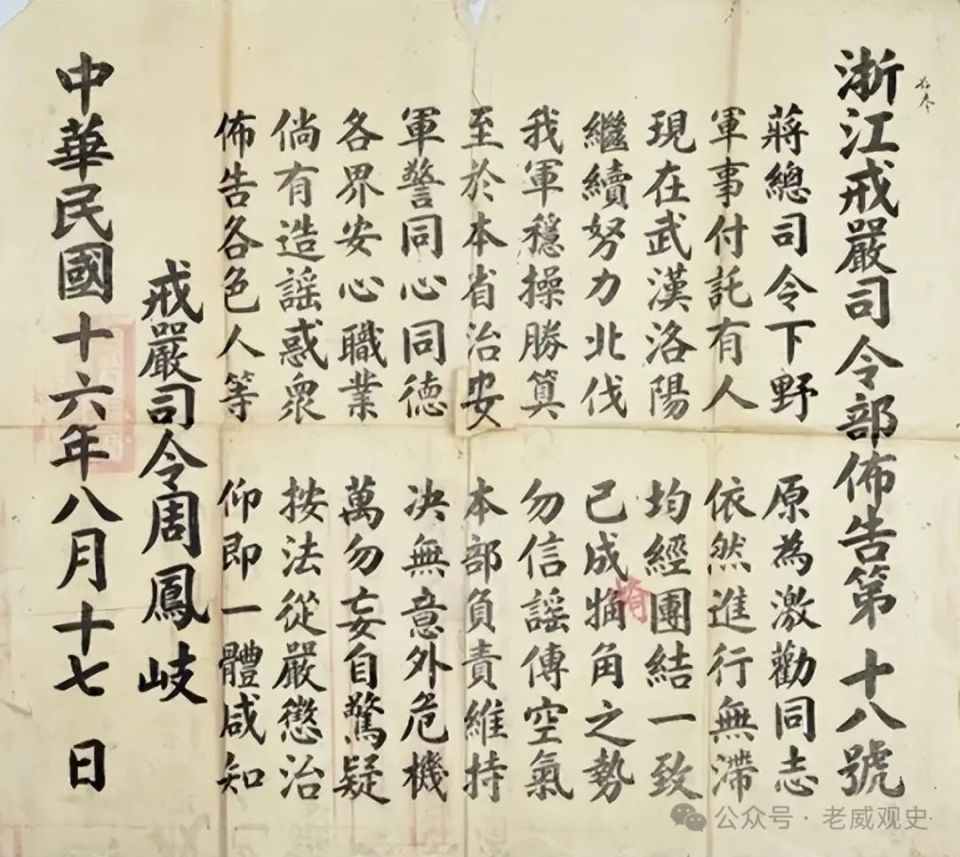 浙江戒嚴司令部佈告第十八號
蔣總司令下野 原為激勸同志
軍事付託有人 依然進行無滯
現在武漢洛陽 均經團結一致
繼續努力北伐 已成犄角之勢
我軍穩操勝算 勿信謠傳空氣
至於本省治安 本部負責維持
軍警同心同德 決無意外危機
各界安心職業 萬勿妄自驚疑
倘有造謠惑眾 按法從嚴懲治
佈告各色人等 仰即一體咸知
戒嚴司令周鳳岐
中華民國十六年八月十七日
公众号·老威观史